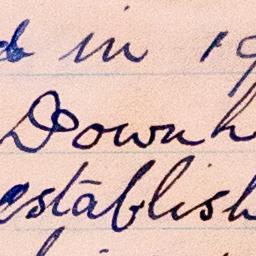 in 19
Down
establish